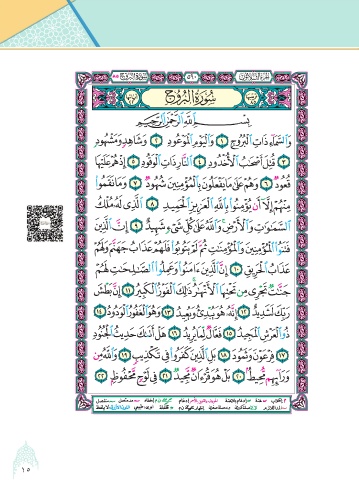 سُورَةُ البُرُوجِ ٥٩٠ الجُزْءُ الثَّلَاثُونَ
سُورَةُ الْبُرُوجِ
بِسْمِ اللَّهِ الرَّحْمَٰنِ الرَّحِيمِ
وَالسَّمَاءِ ذَاتِ الْبُرُوجِ ١ وَالْيَوْمِ الْمَوْعُودِ ٢ وَشَاهِدٍ وَمَشْهُودٍ
٣ قُتِلَ أَصْحَٰبُ الْأُخْدُودِ ٤ النَّارِ ذَاتِ الْوَقُودِ ٥ إِذْ هُمْ عَلَيْهَا
قُعُودٌ ٦ وَهُمْ عَلَىٰ مَا يَفْعَلُونَ بِالْمُؤْمِنِينَ شُهُودٌ ٧ وَمَا نَقَمُوا
مِنْهُمْ إِلَّا أَن يُؤْمِنُوا بِاللَّهِ الْعَزِيزِ الْحَمِيدِ ٨ الَّذِي لَهُ مُلْكُ
السَّمَٰوَٰتِ وَالْأَرْضِ وَاللَّهُ عَلَىٰ كُلِّ شَيْءٍ شَهِيدٌ ٩ إِنَّ الَّذِينَ
فَتَنُوا الْمُؤْمِنِينَ وَالْمُؤْمِنَٰتِ ثُمَّ لَمْ يَتُوبُوا فَلَهُمْ عَذَابُ جَهَنَّمَ وَلَهُمْ
عَذَابُ الْحَرِيقِ ١٠ إِنَّ الَّذِينَ ءَامَنُوا وَعَمِلُوا الصَّٰلِحَٰتِ لَهُمْ
جَنَّٰتٌ تَجْرِي مِن تَحْتِهَا الْأَنْهَٰرُ ذَٰلِكَ الْفَوْزُ الْكَبِيرُ ١١ إِنَّ بَطْشَ
رَبِّكَ لَشَدِيدٌ ١٢ إِنَّهُ هُوَ يُبْدِئُ وَيُعِيدُ ١٣ وَهُوَ الْغَفُورُ الْوَدُودُ ١٤
ذُو الْعَرْشِ الْمَجِيدُ ١٥ فَعَّالٌ لِّمَا يُرِيدُ ١٦ هَلْ أَتَىٰكَ حَدِيثُ الْجُنُودِ
١٧ فِرْعَوْنَ وَثَمُودَ ١٨ بَلِ الَّذِينَ كَفَرُوا فِي تَكْذِيبٍ ١٩ وَاللَّهُ مِن
وَرَآئِهِم مُّحِيطٌ ٢٠ بَلْ هُوَ قُرْءَانٌ مَّجِيدٌ ٢١ فِي لَوْحٍ مَّحْفُوظٍ ٢٢
١٥